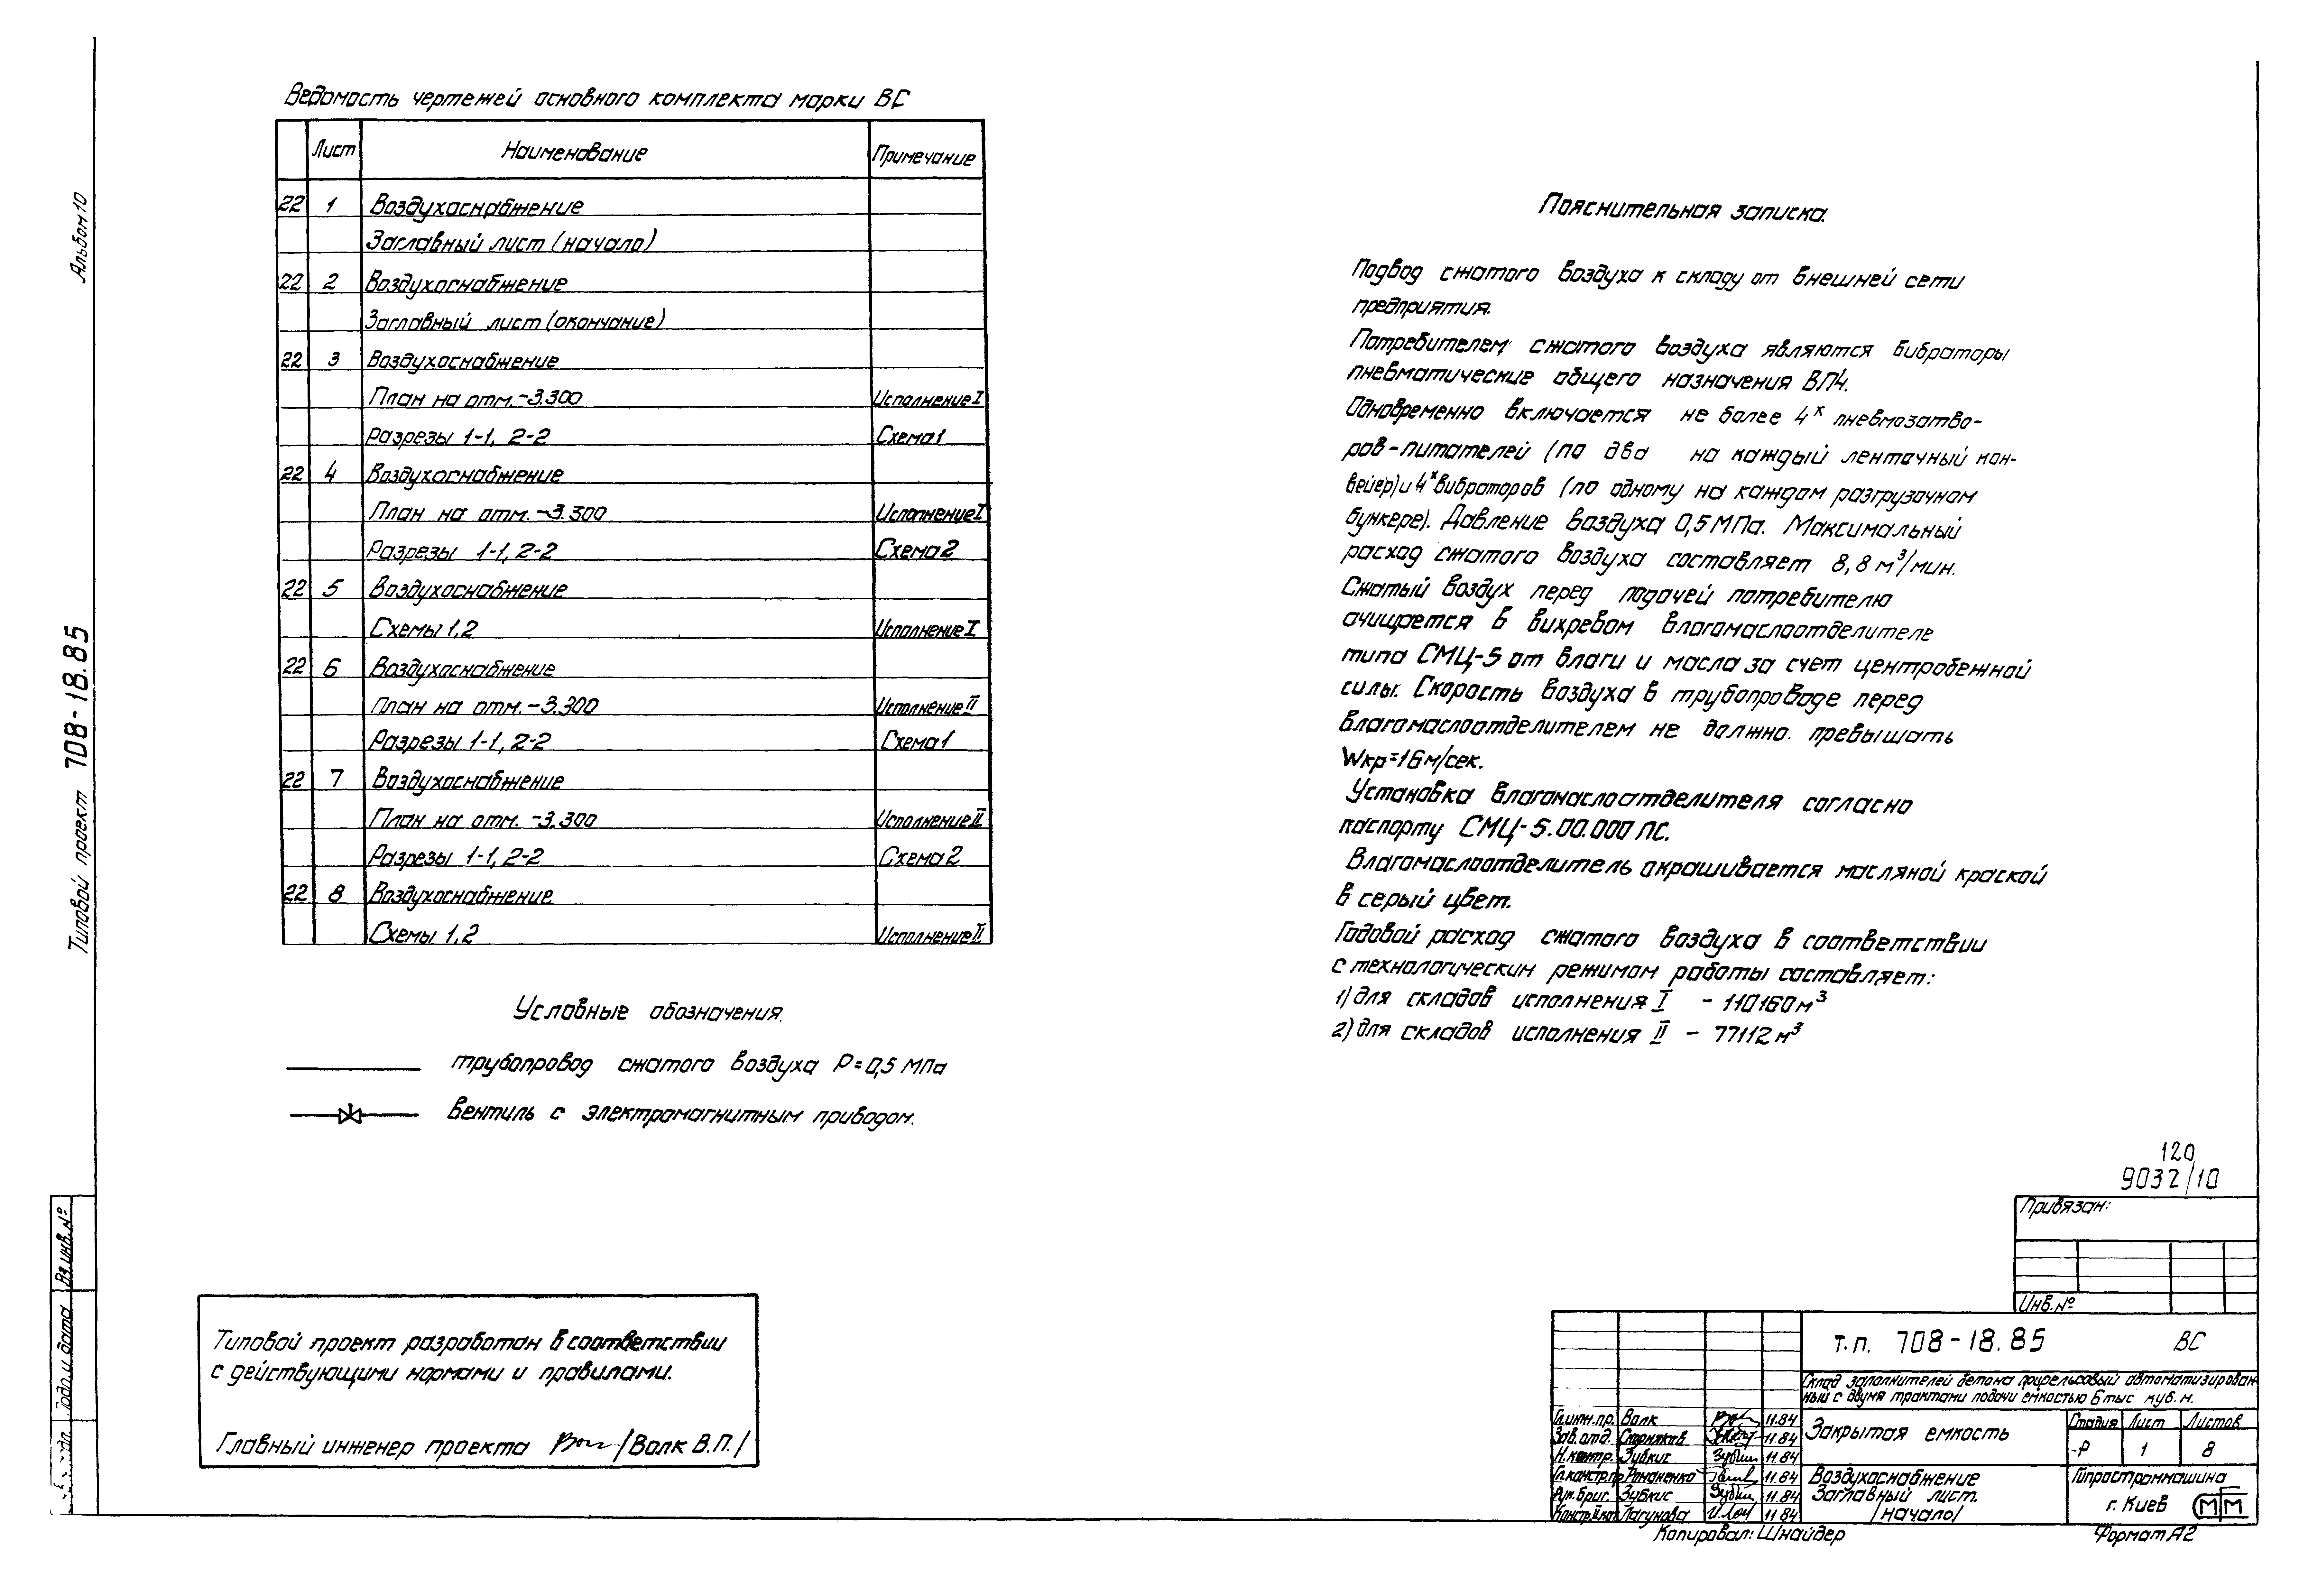 Альбом 10
Типовой проект 708-18.85
Вз.инв.№
Подп. и дата
Ведомость чертежей основного комплекта марки ВС
Лист Наименование Примечание
22 1 Воздухоснабжение
Заглавный лист (начало)
22 2 Воздухоснабжение
Заглавный лист (окончание)
22 3 Воздухоснабжение
План на отм. -3.300 Исполнение I
Разрезы 1-1, 2-2 Схема 1
22 4 Воздухоснабжение
План на отм. -3.300 Исполнение I
Разрезы 1-1, 2-2 Схема 2
22 5 Воздухоснабжение
Схемы 1,2 Исполнение I
22 6 Воздухоснабжение
План на отм. -3.300 Исполнение II
Разрезы 1-1, 2-2 Схема 1
22 7 Воздухоснабжение
План на отм. -3.300 Исполнение II
Разрезы 1-1, 2-2 Схема 2
22 8 Воздухоснабжение
Схемы 1,2 Исполнение II
Условные обозначения.
трубопровод сжатого воздуха P=0,5 МПа
вентиль с электромагнитным приводом.
Типовой проект разработан в соответствии
с действующими нормами и правилами.
Главный инженер проекта /Волк В.П./
Пояснительная записка.
Подвод сжатого воздуха к складу от внешней сети
предприятия.
Потребителем сжатого воздуха являются вибраторы
пневматические общего назначения ВП4.
Одновременно включается не более 4х пневмозатво-
ров-питателей (по два на каждый ленточный кон-
вейер) и 4х вибраторов (по одному на каждом разгрузочном
бункере). Давление воздуха 0,5 МПа. Максимальный
расход сжатого воздуха составляет 8,8 м³/мин.
Сжатый воздух перед подачей потребителю
очищается в вихревом влагомаслоотделителе
типа СМЦ-5 от влаги и масла за счет центробежной
силы. Скорость воздуха в трубопроводе перед
влагомаслоотделителем не должно превышать
Wкр=16м/сек.
Установка влагомаслоотделителя согласно
паспорту СМЦ-5.00.000 ПС.
Влагомаслоотделитель окрашивается масляной краской
в серый цвет.
Годовой расход сжатого воздуха в соответствии
с технологическим режимом работы составляет:
1) для складов исполнения I - 110160 м³
2) для складов исполнения II - 77112 м³
120
9032/10
Привязан:
Инв.№
т.п. 708-18.85 ВС
Склад заполнителей бетона прирельсовый автоматизирован-
ный с двумя трактами подачи емкостью 6 тыс. куб.м.
Гл.инж.пр. Волк 11.84
Зав.отд. Скорняков 11.84
Н.контр. Зубкис 11.84
Гл.констр.пр. Романенко 11.84
Рук.бриг. Зубкис 11.84
Констр.II кат. Лагунова 11.84
Закрытая емкость
Стадия Лист Листов
Р 1 8
Воздухоснабжение
Заглавный лист.
/начало/
Гипростроммашина
г. Киев
МГМ
Копировал: Шнайдер
Формат А2